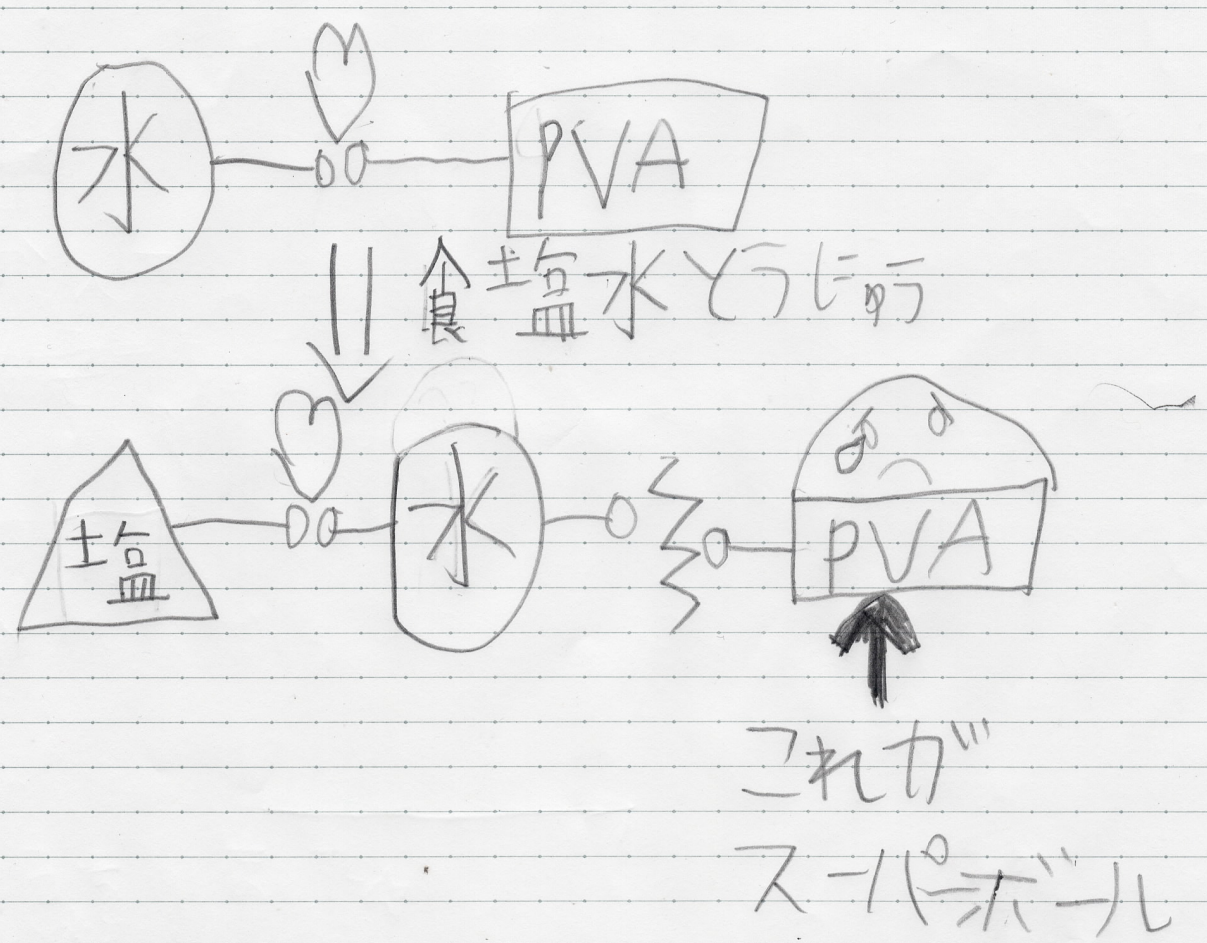 水 PVA
食塩水とうにゅう
塩 水 PVA
これが
スーパーボール